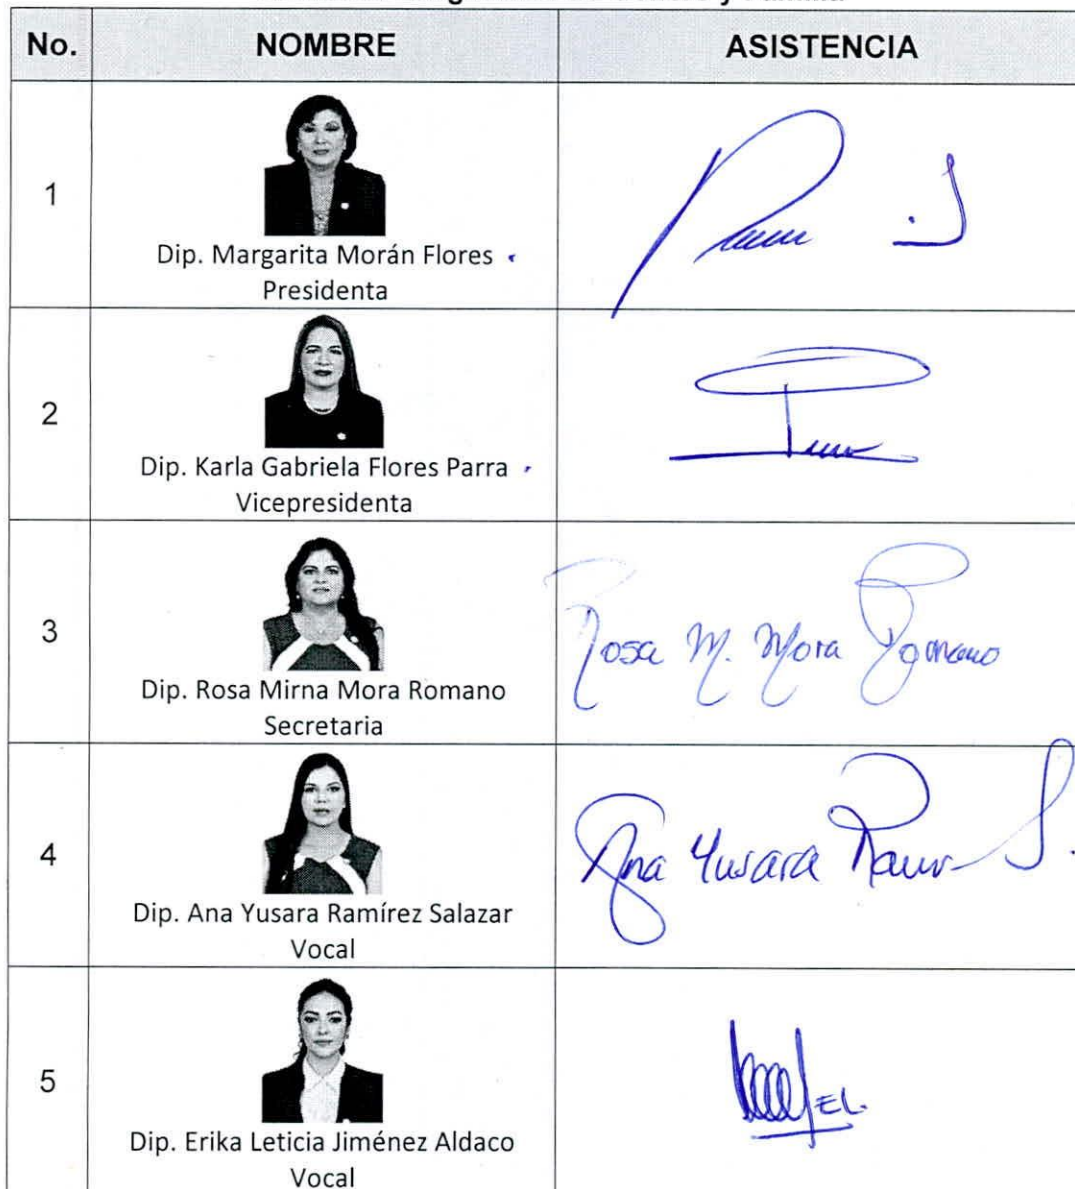 No. NOMBRE ASISTENCIA
1
Dip. Margarita Morán Flores
Presidenta
2
Dip. Karla Gabriela Flores Parra
Vicepresidenta
3
Dip. Rosa Mirna Mora Romano
Secretaria
Rosa M. Mora Romano
4
Dip. Ana Yusara Ramírez Salazar
Vocal
Ana Yusara
5
Dip. Erika Leticia Jiménez Aldaco
Vocal